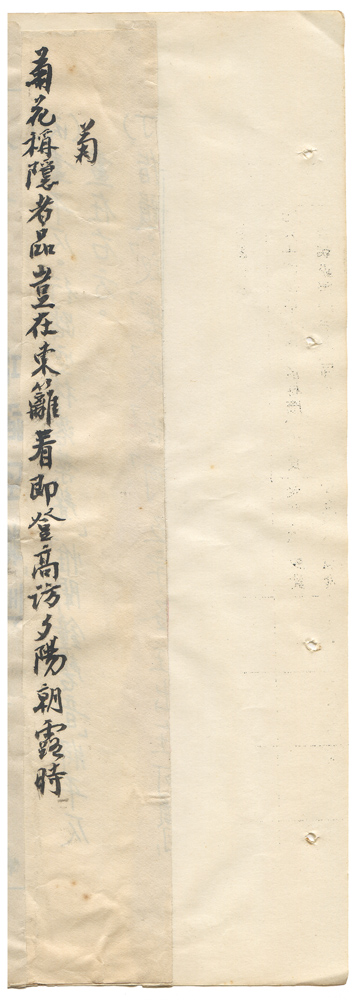 菊
菊花稱隱者品豈在東籬看即登高訪夕陽朝露時